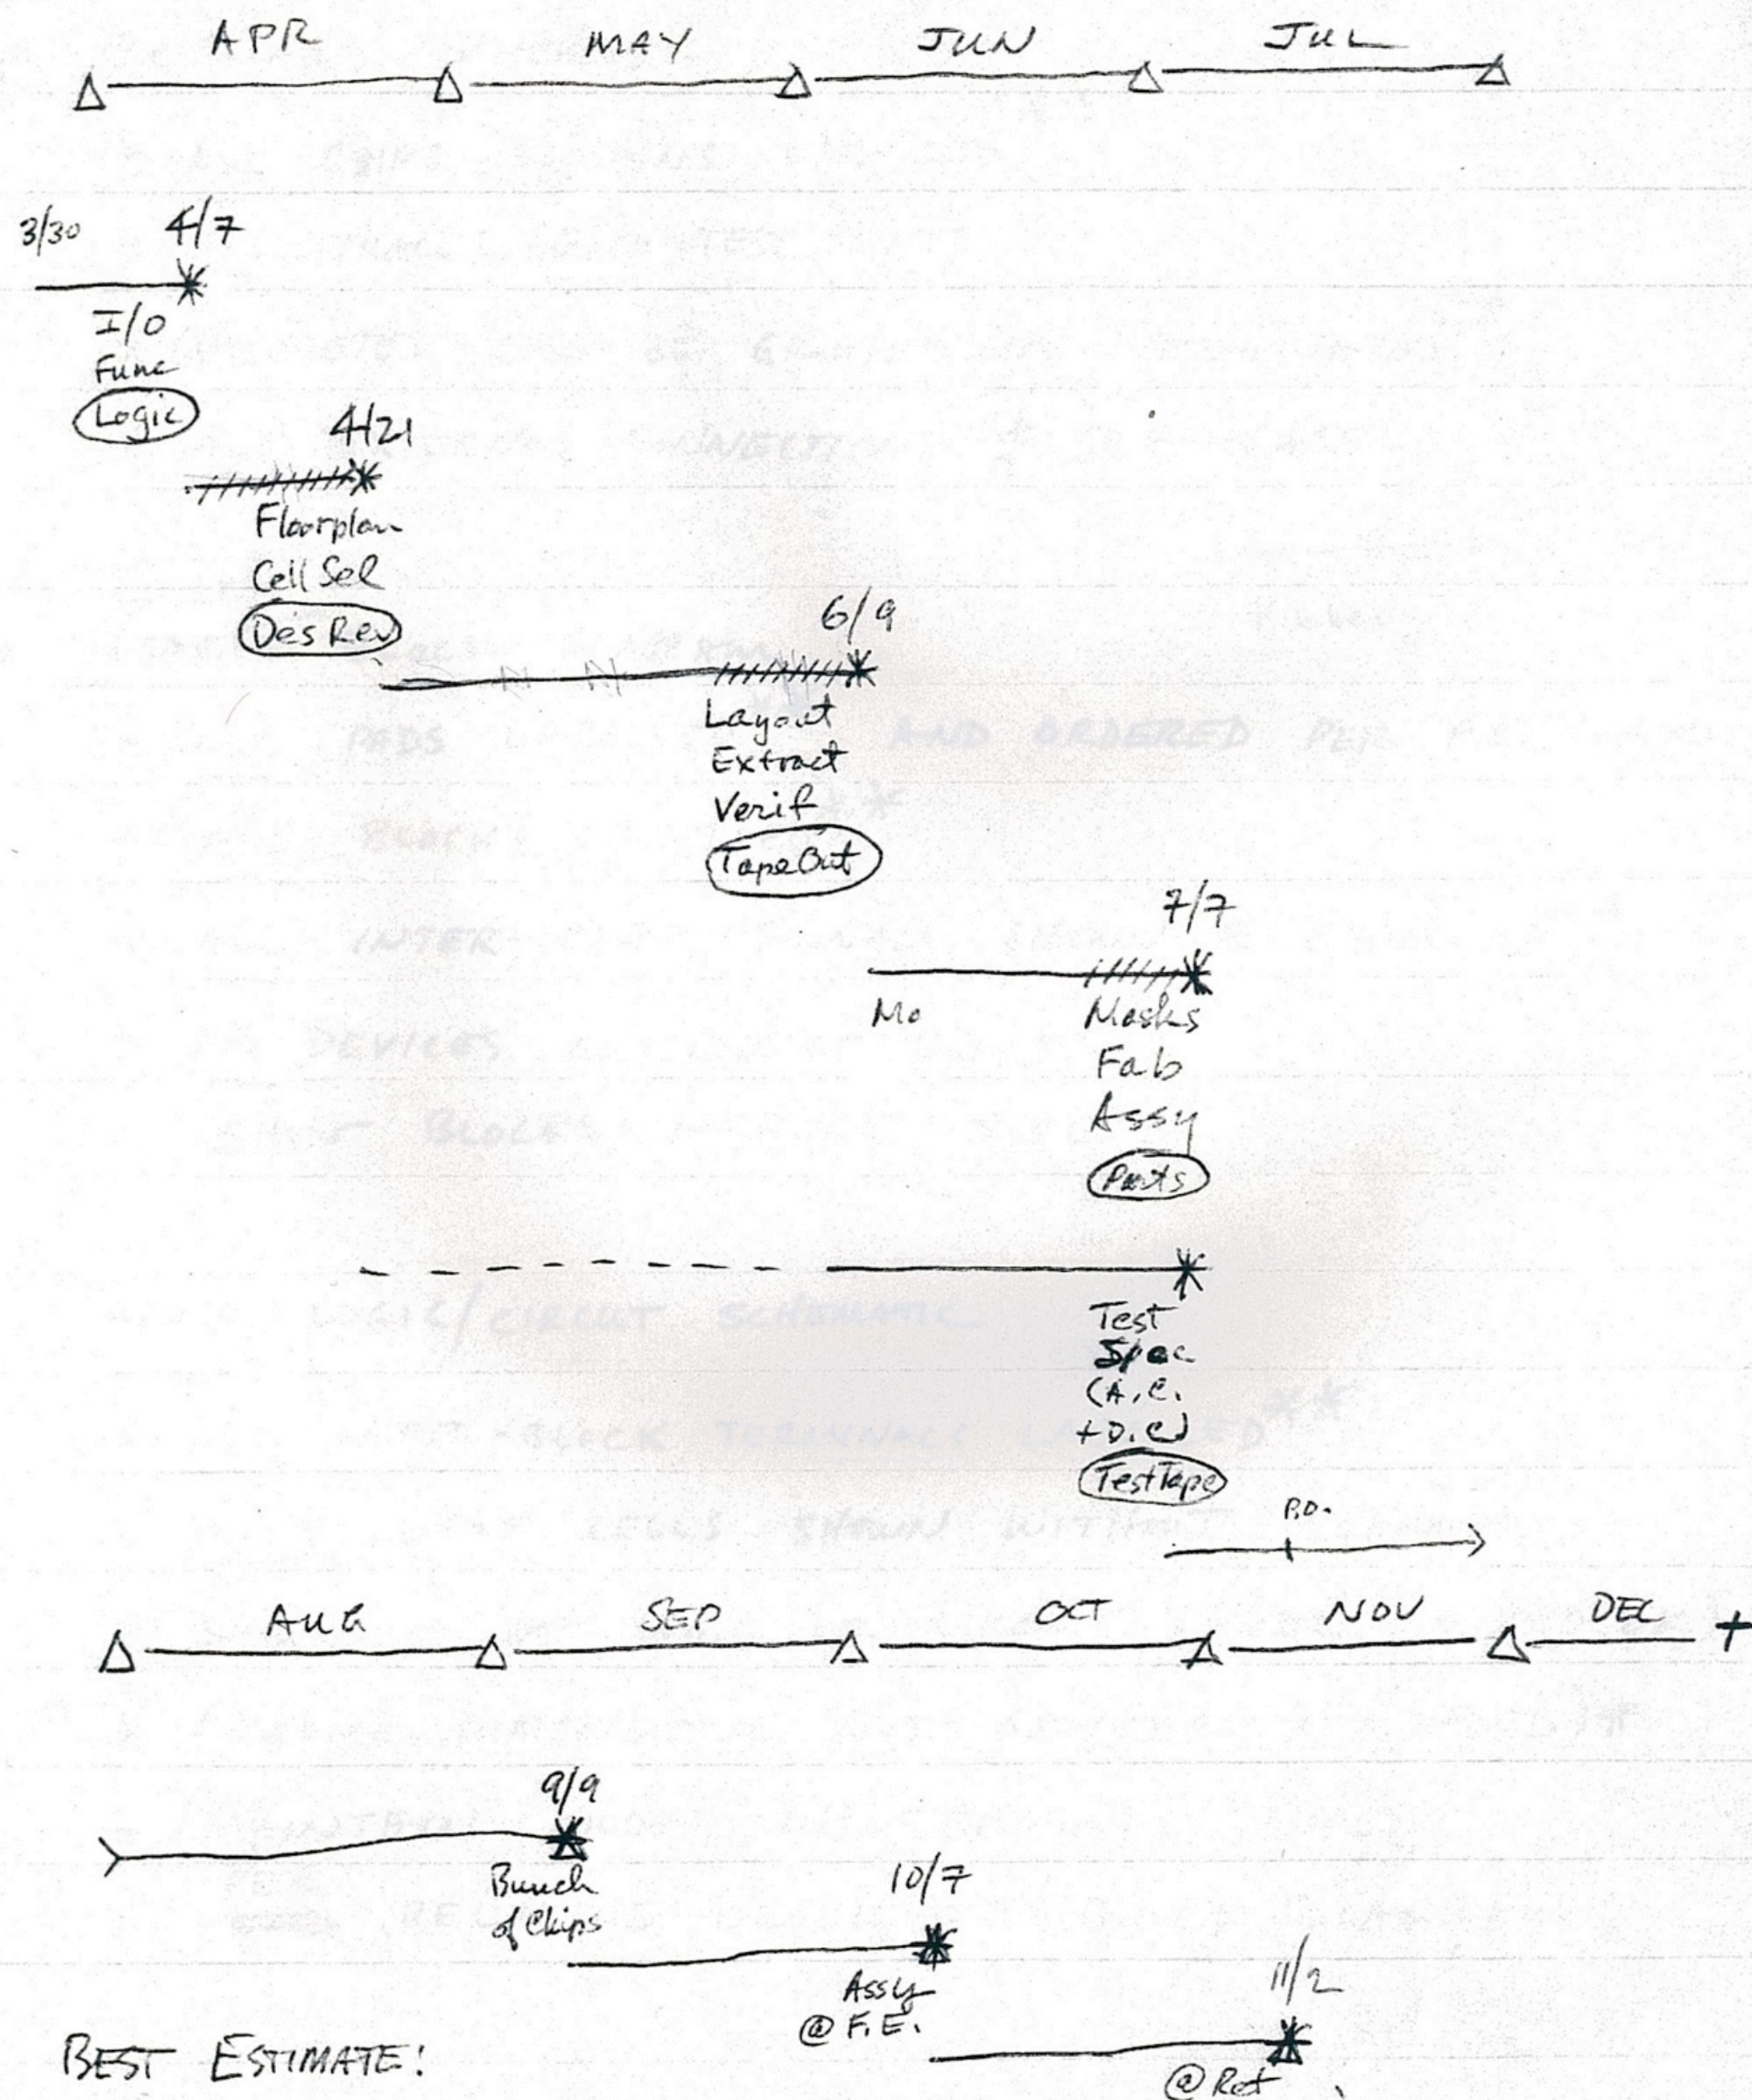 APR MAY JUN JUL
3/30 4/7
I/O
Func
Logic
4/21
Floorplan
Cell Sel
Des Rev
6/9
Layout
Extract
Verif
TapeOut
7/7
Mo Masks
Fab
Assy
Parts
Test
Spec
(A.C.
+D.C)
TestTape
P.O.
AUG SEP OCT NOV DEC +
9/9
Bunch
of Chips
10/7
Assy
@ F.E.
11/2
@ Ret
BEST ESTIMATE!